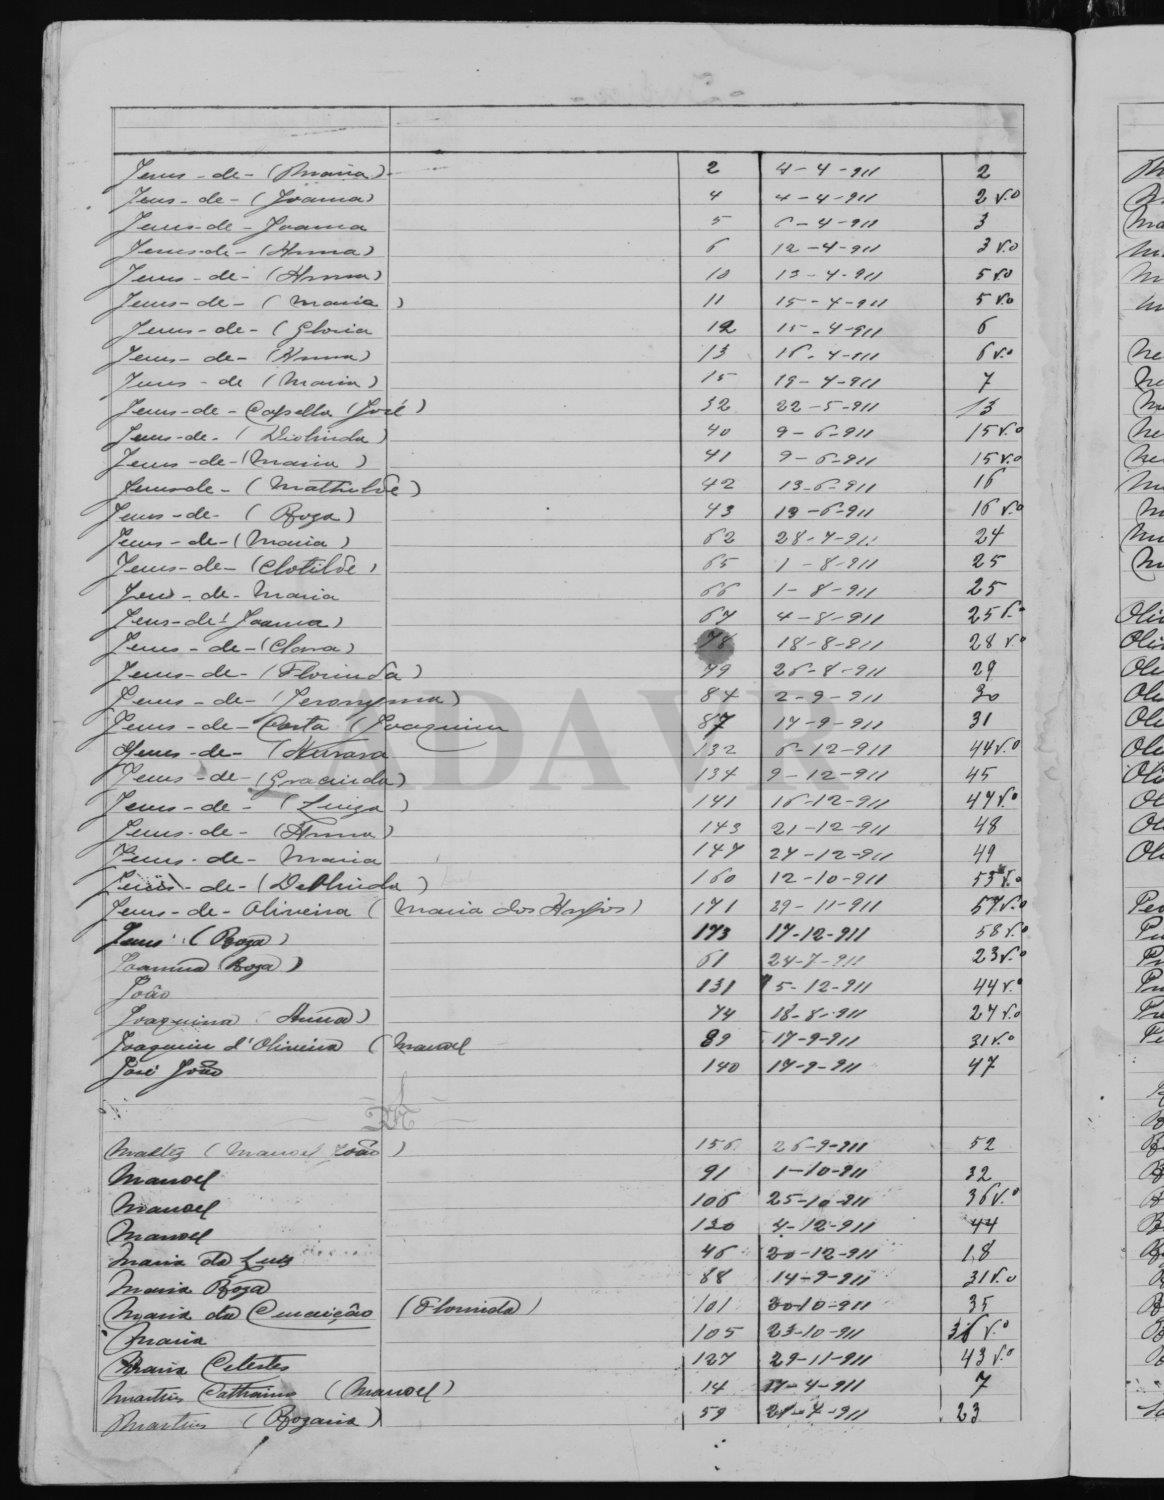 Jesus - de - (Maria) 2 4-4-911 2
Jesus - de - (Joanna) 4 4-4-911 2 v.o
Jesus - de - Joanna 5 6-4-911 3
Jesus - de - (Anna) 6 12-4-911 3 v.o
Jesus - de - (Anna) 10 13-4-911 5 v.o
Jesus - de - (Maria) 11 15-4-911 5 v.o
Jesus - de - (Gloria 12 15-4-911 6
Jesus - de - (Anna) 13 16-4-911 6 v.o
Jesus - de (Maria) 15 19-4-911 7
Jesus - de - Capella (José) 32 22-5-911 13
Jesus - de - (Diolinda) 40 9-6-911 15 v.o
Jesus - de - (Maria) 41 9-6-911 15 v.o
Jesus de - (Mathilde) 42 13-6-911 16
Jesus - de - (Roza) 43 19-6-911 16 v.o
Jesus - de - (Maria) 62 28-7-911 24
Jesus - de - (Clotilde) 65 1-8-911 25
Jesus - de - Maria 66 1-8-911 25
Jesus - de - Joanna) 67 4-8-911 25 v.o
Jesus - de - (Clara) 78 18-8-911 28 v.o
Jesus - de - (Florinda) 79 26-8-911 29
Jesus - de - (Jeronyma) 84 2-9-911 30
Jesus - de - Costa (Joaquim 87 17-9-911 31
Jesus - de - (Aurora 132 6-12-911 44 v.o
Jesus - de - (Gracinda) 134 9-12-911 45
Jesus - de - (Luiza) 141 16-12-911 47 v.o
Jesus - de - (Anna) 143 21-12-911 48
Jesus - de - Maria 147 27-12-911 49
Jesus - de - (Deolinda) 160 12-10-911 53 v.o
Jesus - de - Oliveira (Maria dos Anjos) 171 29-11-911 57 v.o
Jesus (Roza) 173 17-12-911 58 v.o
Joanna (Roza) 61 24-7-911 23 v.o
João 131 5-12-911 44 v.o
Joaquina (Anna) 74 18-8-911 27 v.o
Joaquim d'Oliveira (Manoel 89 17-9-911 31 v.o
José João 140 17-9-911 47
M
(Manoel João) 156 26-9-911 52
Manoel 91 1-10-911 32
Manoel 106 25-10-911 36 v.o
Manoel 130 4-12-911 44
Maria da Luz 46 20-12-911 18
Maria Roza 88 14-9-911 31 v.o
Maria da Conceição (Florinda) 101 20-10-911 35
Maria 105 23-10-911 36 v.o
Maria Celestes 127 29-11-911 43 v.o
Martins Catharino (Manoel) 14 17-4-911 7
Martins (Rozaria) 59 21-7-911 23
ADAVR